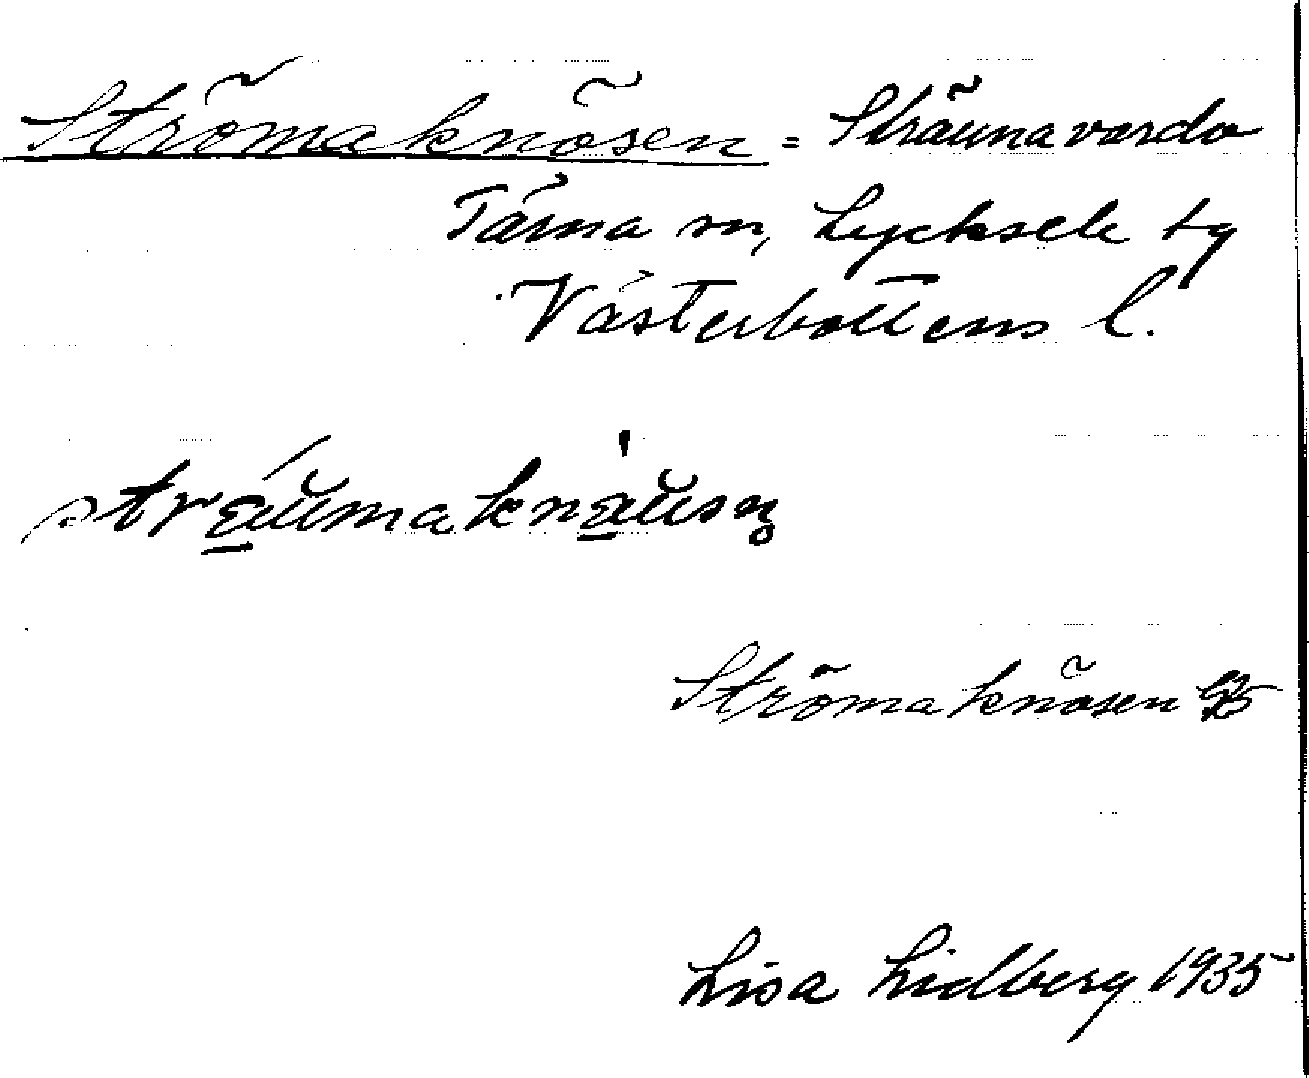 Strömaknösen = Sträunavardo
Tärna sn, Lycksele tg
Västerbottens l.
stræ̲ŭmaknæ̲ŭsn̥
Strömaknösen
Lisa Lidberg 1935